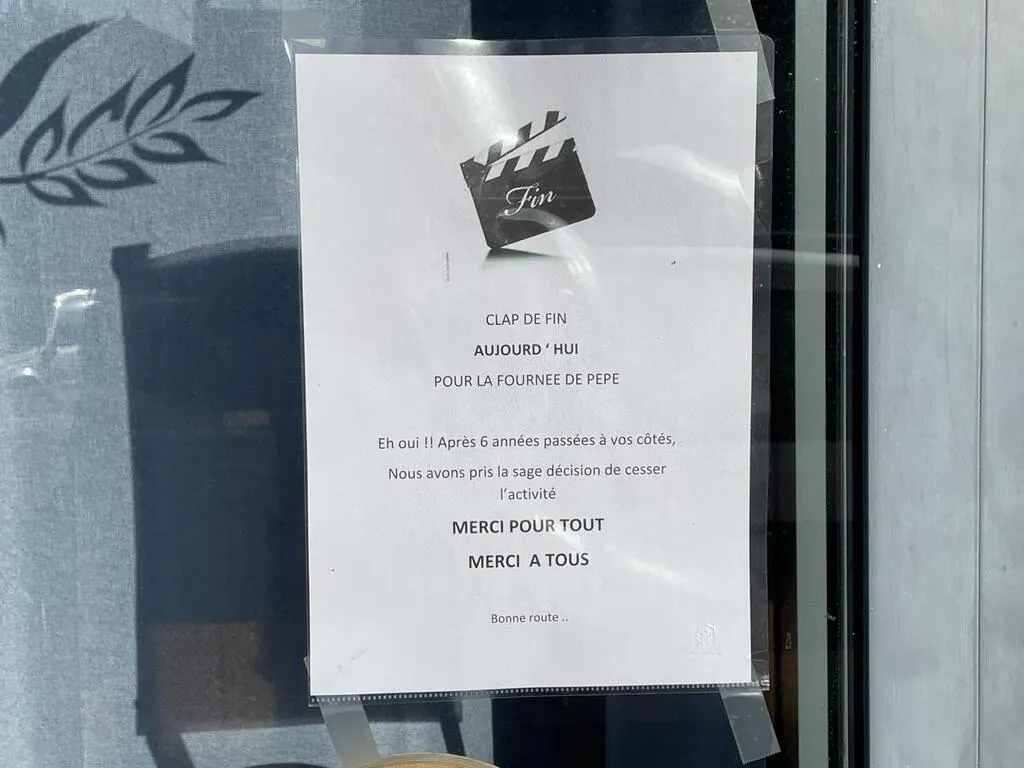 Fin
CLAP DE FIN
AUJOURD ‘ HUI
POUR LA FOURNEE DE PEPE
Eh oui !! Après 6 années passées à vos côtés,
Nous avons pris la sage décision de cesser
l’activité
MERCI POUR TOUT
MERCI  A TOUS
Bonne route ..